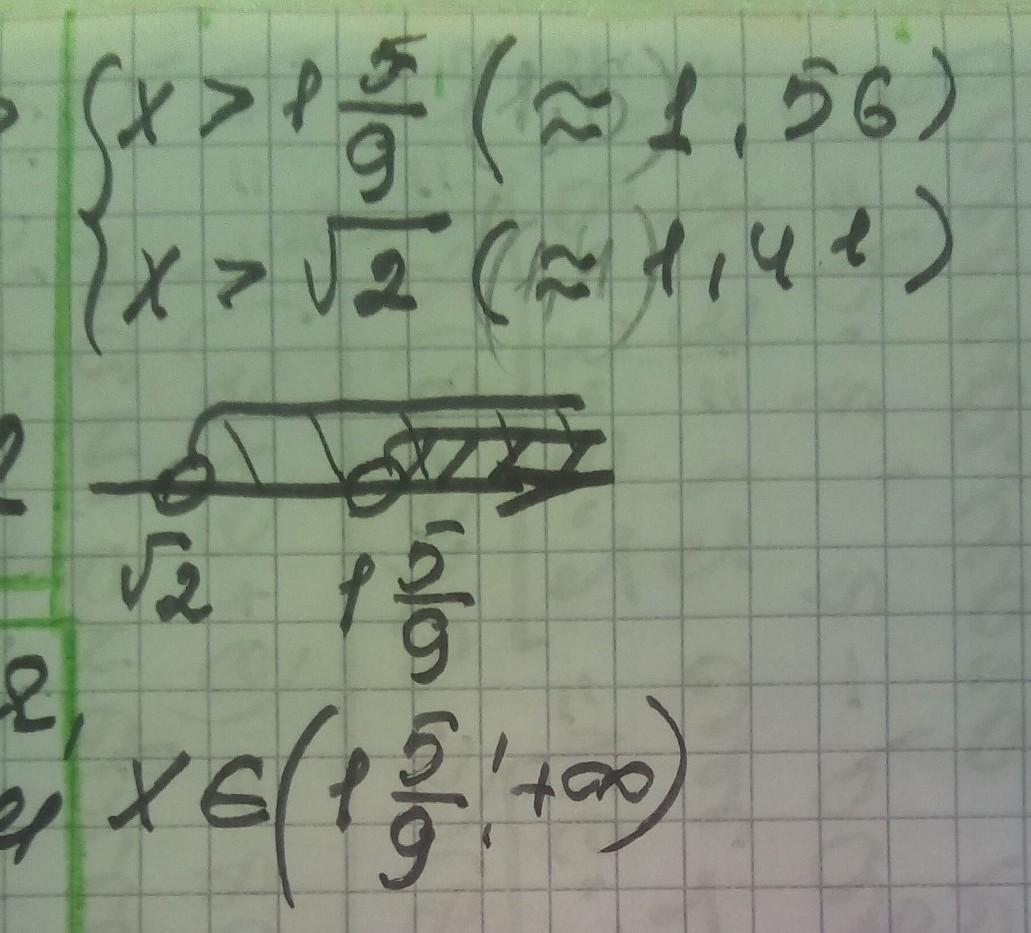 { x > 1 5/9 (≈ 1,56)
x > √2 (≈ 1,41)
√2 1 5/9
x ∈ (1 5/9; +∞)